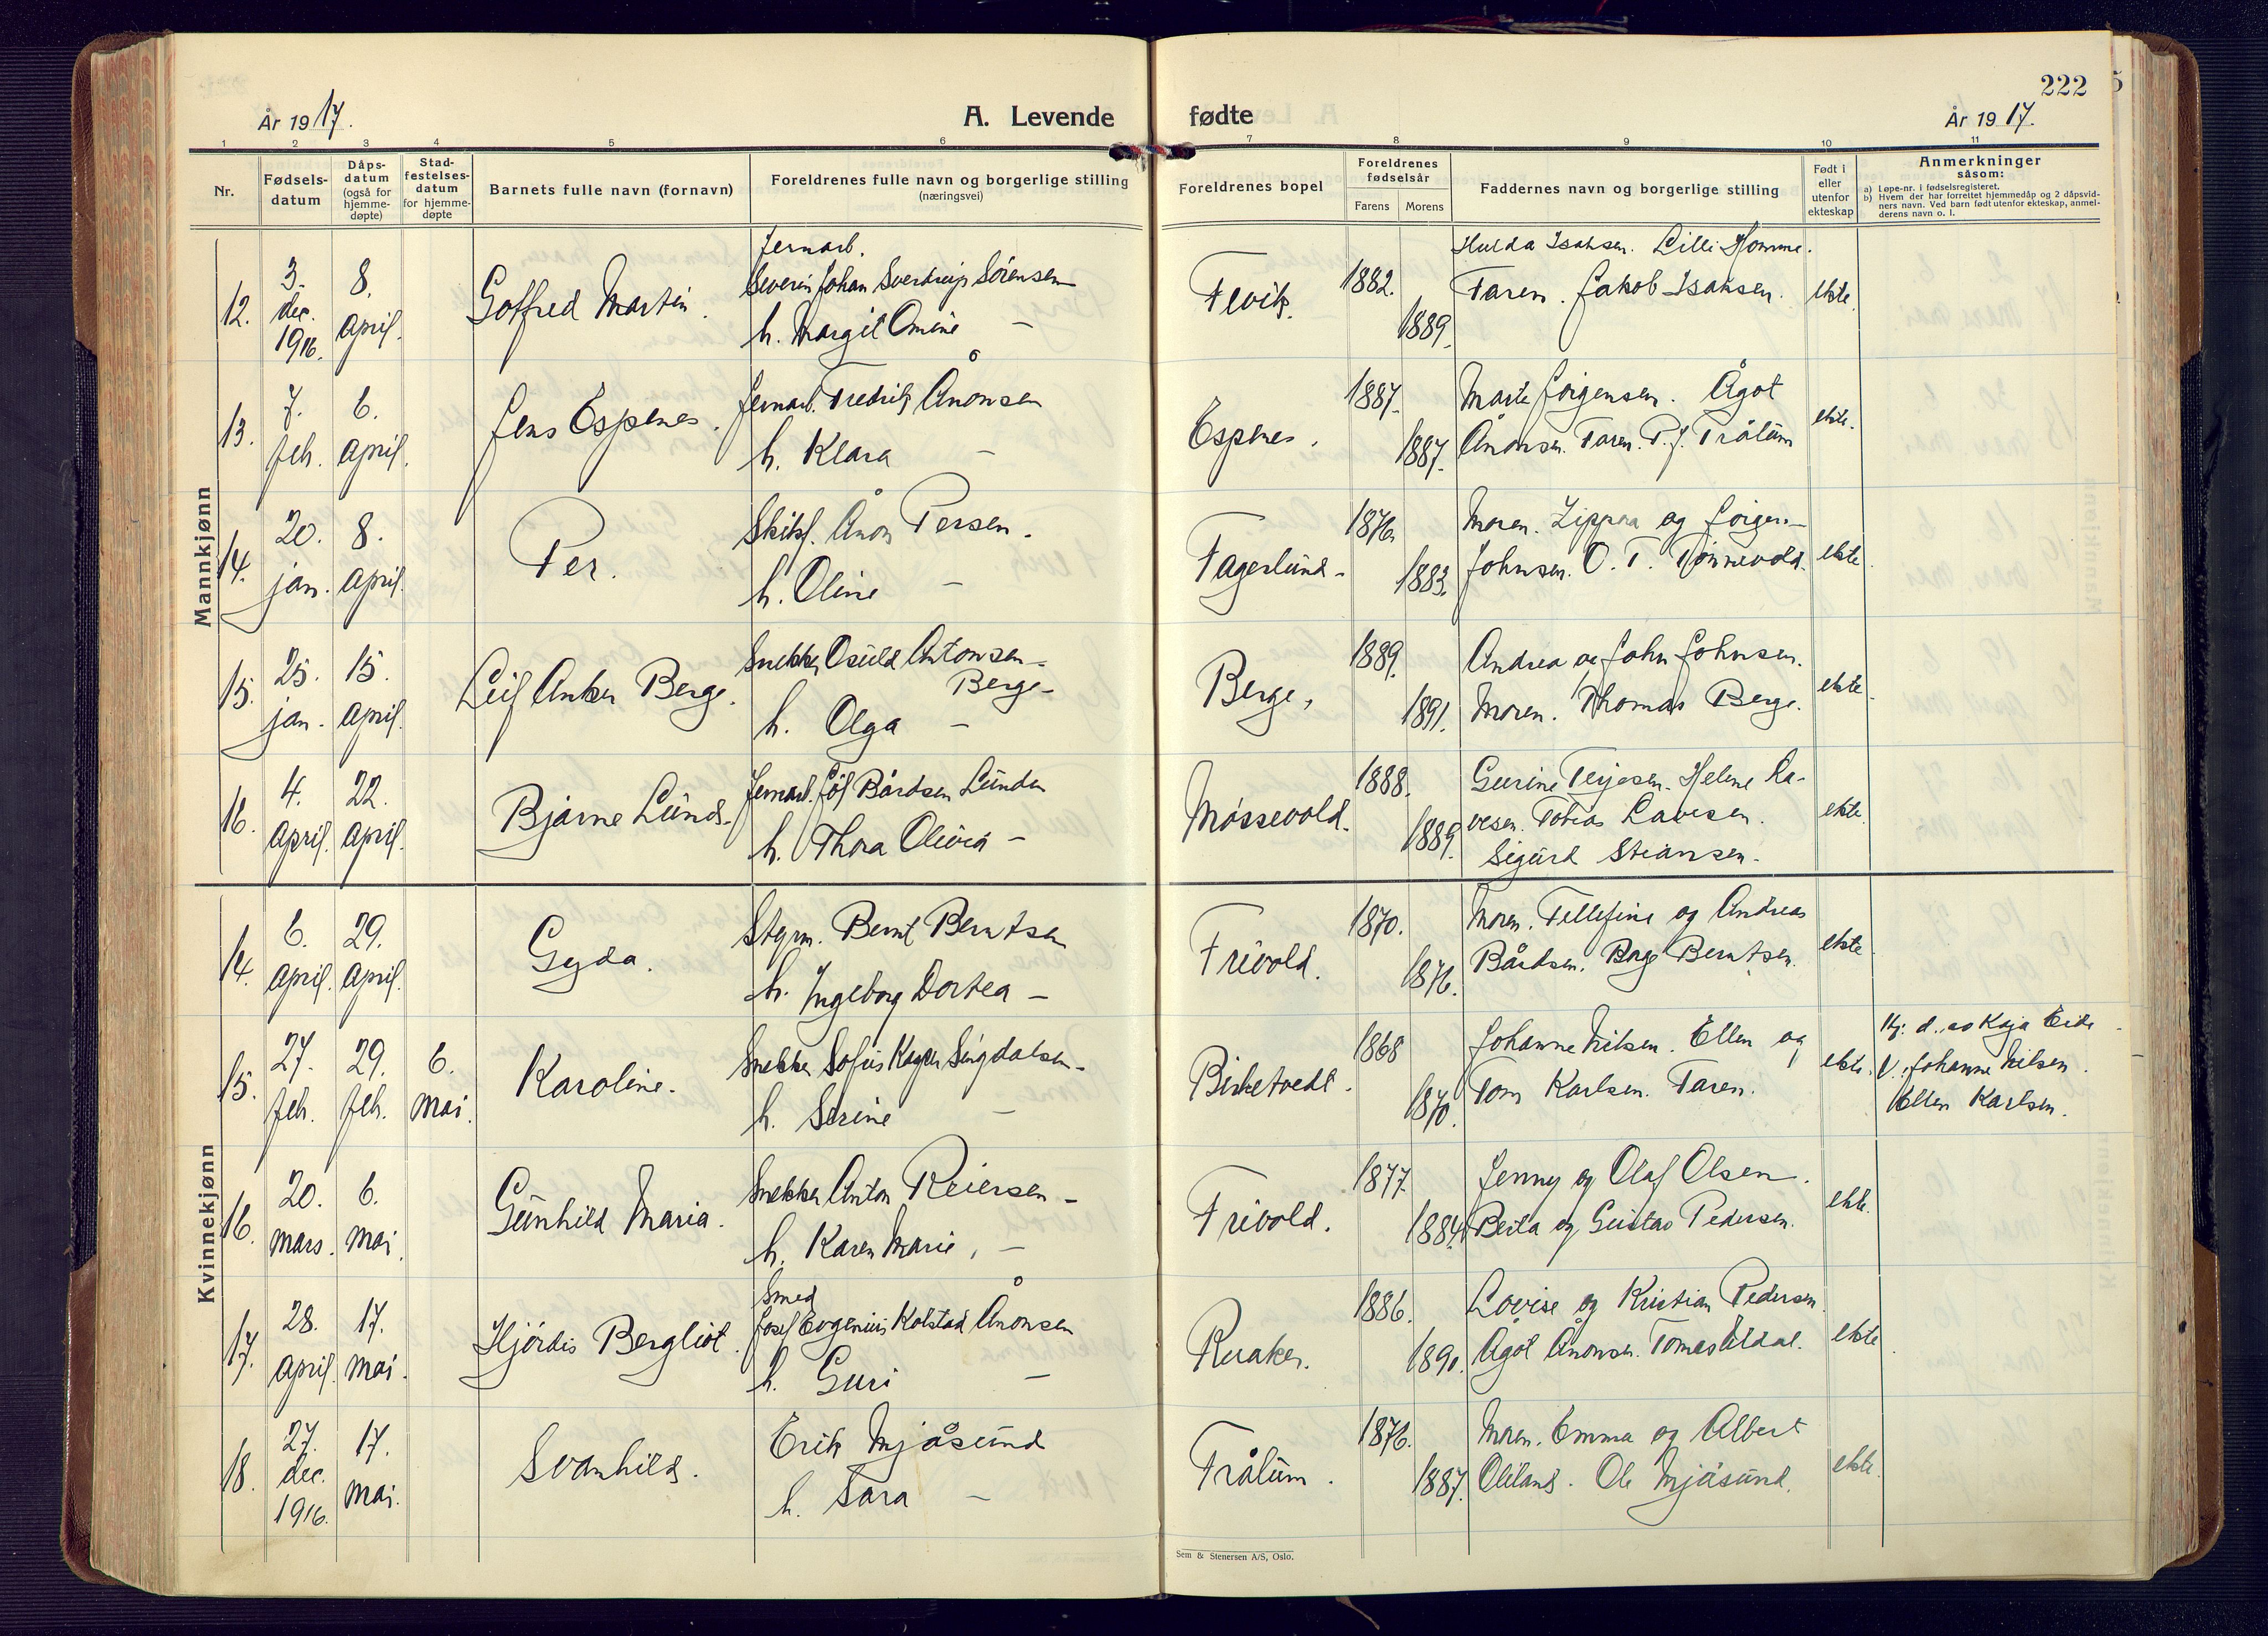 222
År 1917.
A. Levende
fødte
År 1917.
1 2 3 4 5 6 7 8 9 10 11
Nr.
Fødsels-
datum
Dåps-
datum
(også for
hjemme-
døpte)
Stad-
festelses-
datum
for hjemme-
døpte
Barnets fulle navn (fornavn)
Foreldrenes fulle navn og borgerlige stilling
(næringsvei)
Foreldrenes bopel
Foreldrenes
fødselsår
Farens Morens
Faddernes navn og borgerlige stilling
Født i
eller
utenfor
ekteskap
Anmerkninger
såsom:
a) Løpe-nr. i fødselsregisteret.
b) Hvem der har forrettet hjemmedåp og 2 dåpsvid-
ners navn. Ved barn født utenfor ekteskap, anmel-
derens navn o. l.
Mannkjønn
12. 3. dec. 1916. 8. april. Gotfred Martin.
Jernarb.
Severin Johan Sverdrup Sørensen
h. Margit Omine —
Fevik. 1882. 1889.
Hulda Isaksen. Lilli Homme.
Faren. Jakob Isaksen.
ekte.
13. 7. feb. 6. april. Jens Espenes.
Jernarb. Fredrik Ånonsen
h. Klara —
Espenes. 1887. 1887.
Marte Jörgensen. Ågot
Ånonsen. Faren. P. J. Trålum
ekte.
14. 20. jan. 8. april. Per.
Skibsf. Ånon Persen.
h. Oline —
Fagerlund. 1876. 1883.
Moren. Zippora og Jörgen
Johnsen. O. T. Tönnevold.
ekte.
15. 25. jan. 15. april. Leif Anker Berge.
Snekker Osuld Antonsen
Berge
h. Olga —
Berge. 1889. 1891.
Andrea og John Johnsen.
Moren. Thomas Berge.
ekte.
16. 4. april. 22. april. Bjarne Lund.
Jernarb. Jöl Bårdsen Lunden
h. Thora Olivia —
Møssevold. 1888. 1889.
Gurine Terjesen. Helene La-
vesen. Tobias Lavesen.
Sigurd Steansen.
ekte.
Kvinnekjønn
14. 6. april. 29. april. Gyda.
Styrm. Bernt Berntsen
h. Ingeborg Dortea —
Frivold. 1870. 1876.
Moren. Tellefine og Andreas
Bårdsen. Borge Berntsen.
ekte.
15. 27. feb. 29. feb. 6. mai. Karoline.
Snekker Sofus Sigdalsen
h. Serine —
Birketvedt. 1868 1870.
Johanne Nilsen. Ellen og
Tom Karlsen. Faren.
ekte.
Hj. d. av Kaja Eide
V. Johanne Nilsen.
Ellen Karlsen.
16. 20. mars. 6. mai. Gunhild Maria.
Snekker Anton Reiersen —
h. Karen Marie, —
Frivold. 1877. 1884.
Jenny og Olaf Olsen.
Berta og Gustav Pedersen.
ekte.
17. 28. april. 17. mai. Hjördis Bergliot.
Smed
Josef Evgenius Kolstad Ånonsen
h. Guri —
Ruaker. 1886. 1890.
Lovise og Kristian Pedersen.
Ågot Ånonsen. Tomas Eldal.
ekte.
18. 27. dec. 1916. 17. mai. Svanhild.
Erik Mjåsund
h. Sara —
Trålum. 1876. 1887.
Moren. Emma og Albert
Oliland. Ole Mjåsund.
ekte.
Sem & Stenersen A/S, Oslo.